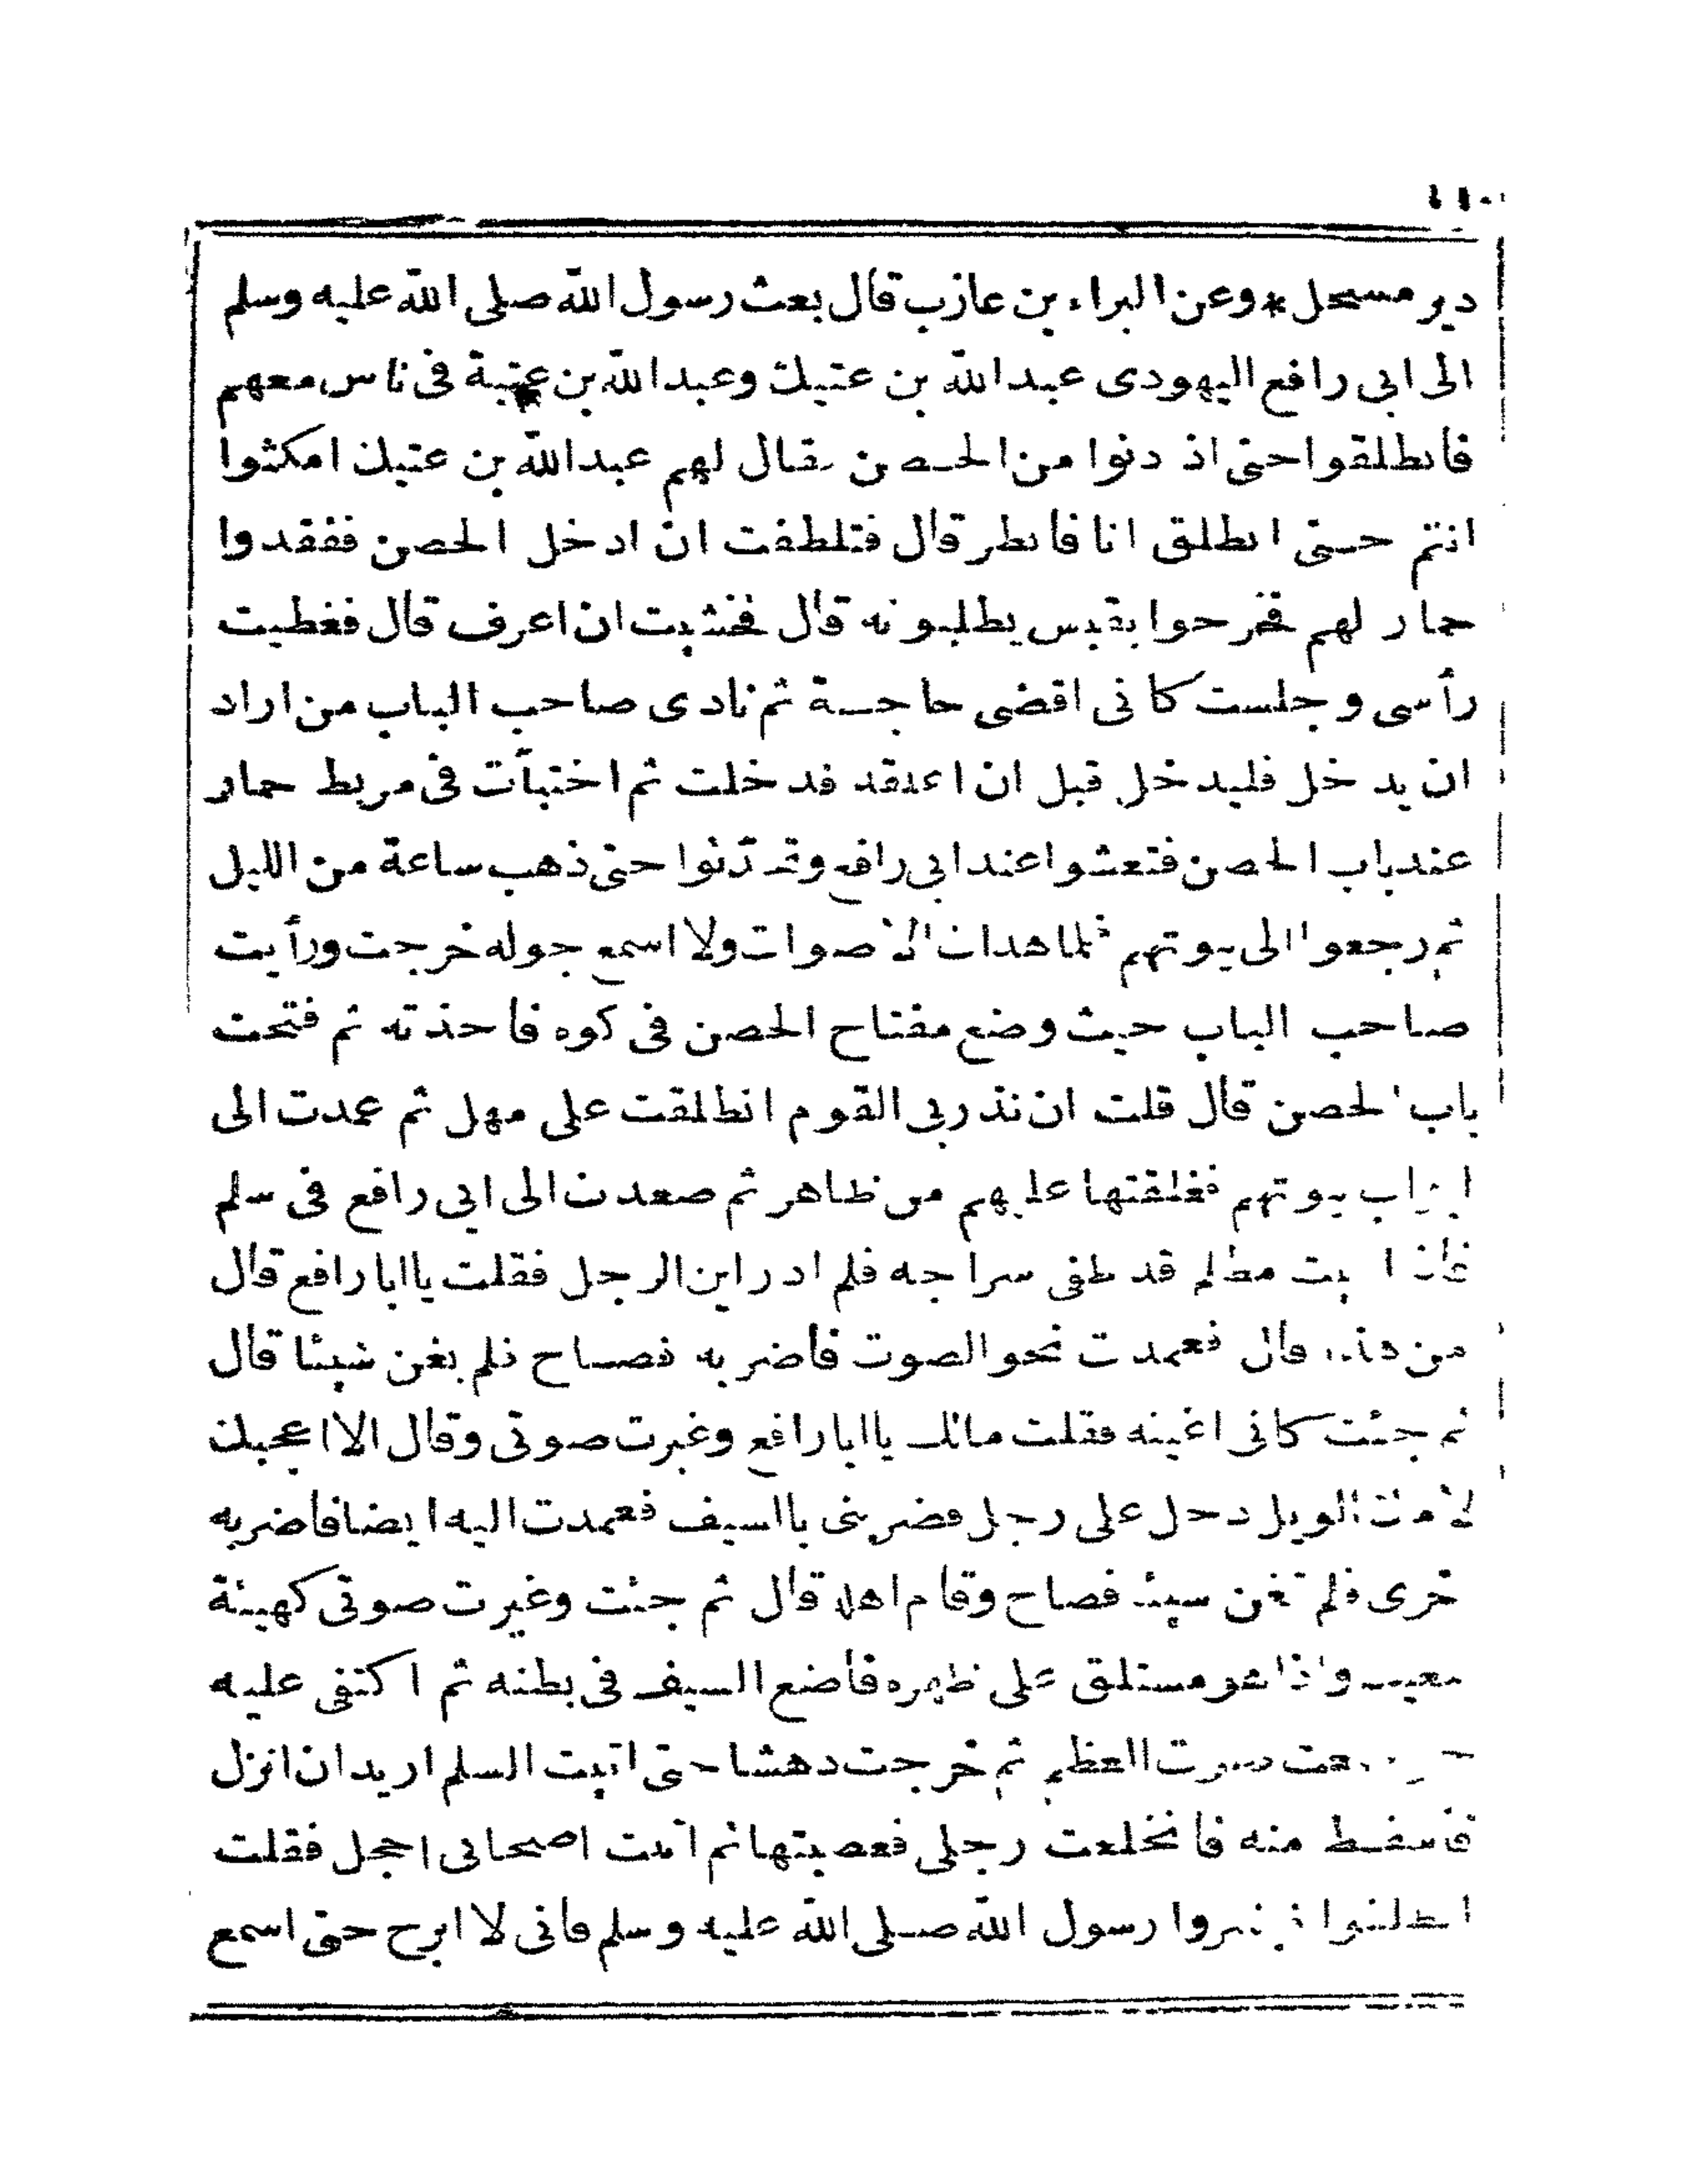 ١١٠
دير مسحل * وعن البراء بن عازب قال بعث رسول الله صلى الله عليه وسلم
الى ابى رافع اليهودى عبدالله بن عتيك وعبدالله بن عتبة فى ناس معهم
فانطلقوا حتى اذ دنوا من الحصن فقال لهم عبدالله بن عتيك امكثوا
انتم حتى انطلق انا فانظر قال فتلطفت ان ادخل الحصن ففقدوا
حمار لهم فخرجوا بقبس يطلبونه قال فخشيت ان اعرف قال فغطيت
رأسى وجلست كانى اقضى حاجة ثم نادى صاحب الباب من اراد
ان يدخل فليدخل قبل ان اغلقه فدخلت ثم اختبأت فى مربط حمار
عند باب الحصن فتعشوا عند ابى رافع وتحدثوا حتى ذهب ساعة من الليل
ثم رجعوا الى بيوتهم فلما هدات الاصوات ولا اسمع جوله خرجت ورأيت
صاحب الباب حيث وضع مفتاح الحصن فى كوه فاخذته ثم فتحت
باب الحصن قال قلت ان نذر بى القوم انطلقت على مهل ثم عمدت الى
ابواب بيوتهم فغلقتها عليهم من ظاهر ثم صعدت الى ابى رافع فى سلم
فاذا البيت مظلم قد طفى سراجه فلم ادر اين الرجل فقلت يا ابا رافع قال
من هذا قال فعمدت نحو الصوت فأضربه فصاح فلم يغن شيئا قال
ثم جئت كانى اغيثه فقلت مالك يا ابا رافع وغيرت صوتى وقال الا اعجبك
لامك الويل دخل على رجل فضربنى بالسيف فعمدت اليه ايضا فاضربه
خرى فلم تغن شيئا فصاح وقام اهله قال ثم جئت وغيرت صوتى كهيئة
المغيث واذا هو مستلق على ظهره فأضع السيف فى بطنه ثم اكتفى عليه
سمعت صوت العظم ثم خرجت دهشا حتى اتيت السلم اريد ان انزل
فاسقط منه فانخلعت رجلى فعصبتها ثم اتيت اصحابى احجل فقلت
انطلقوا فبشروا رسول الله صلى الله عليه وسلم فانى لا ابرح حتى اسمع